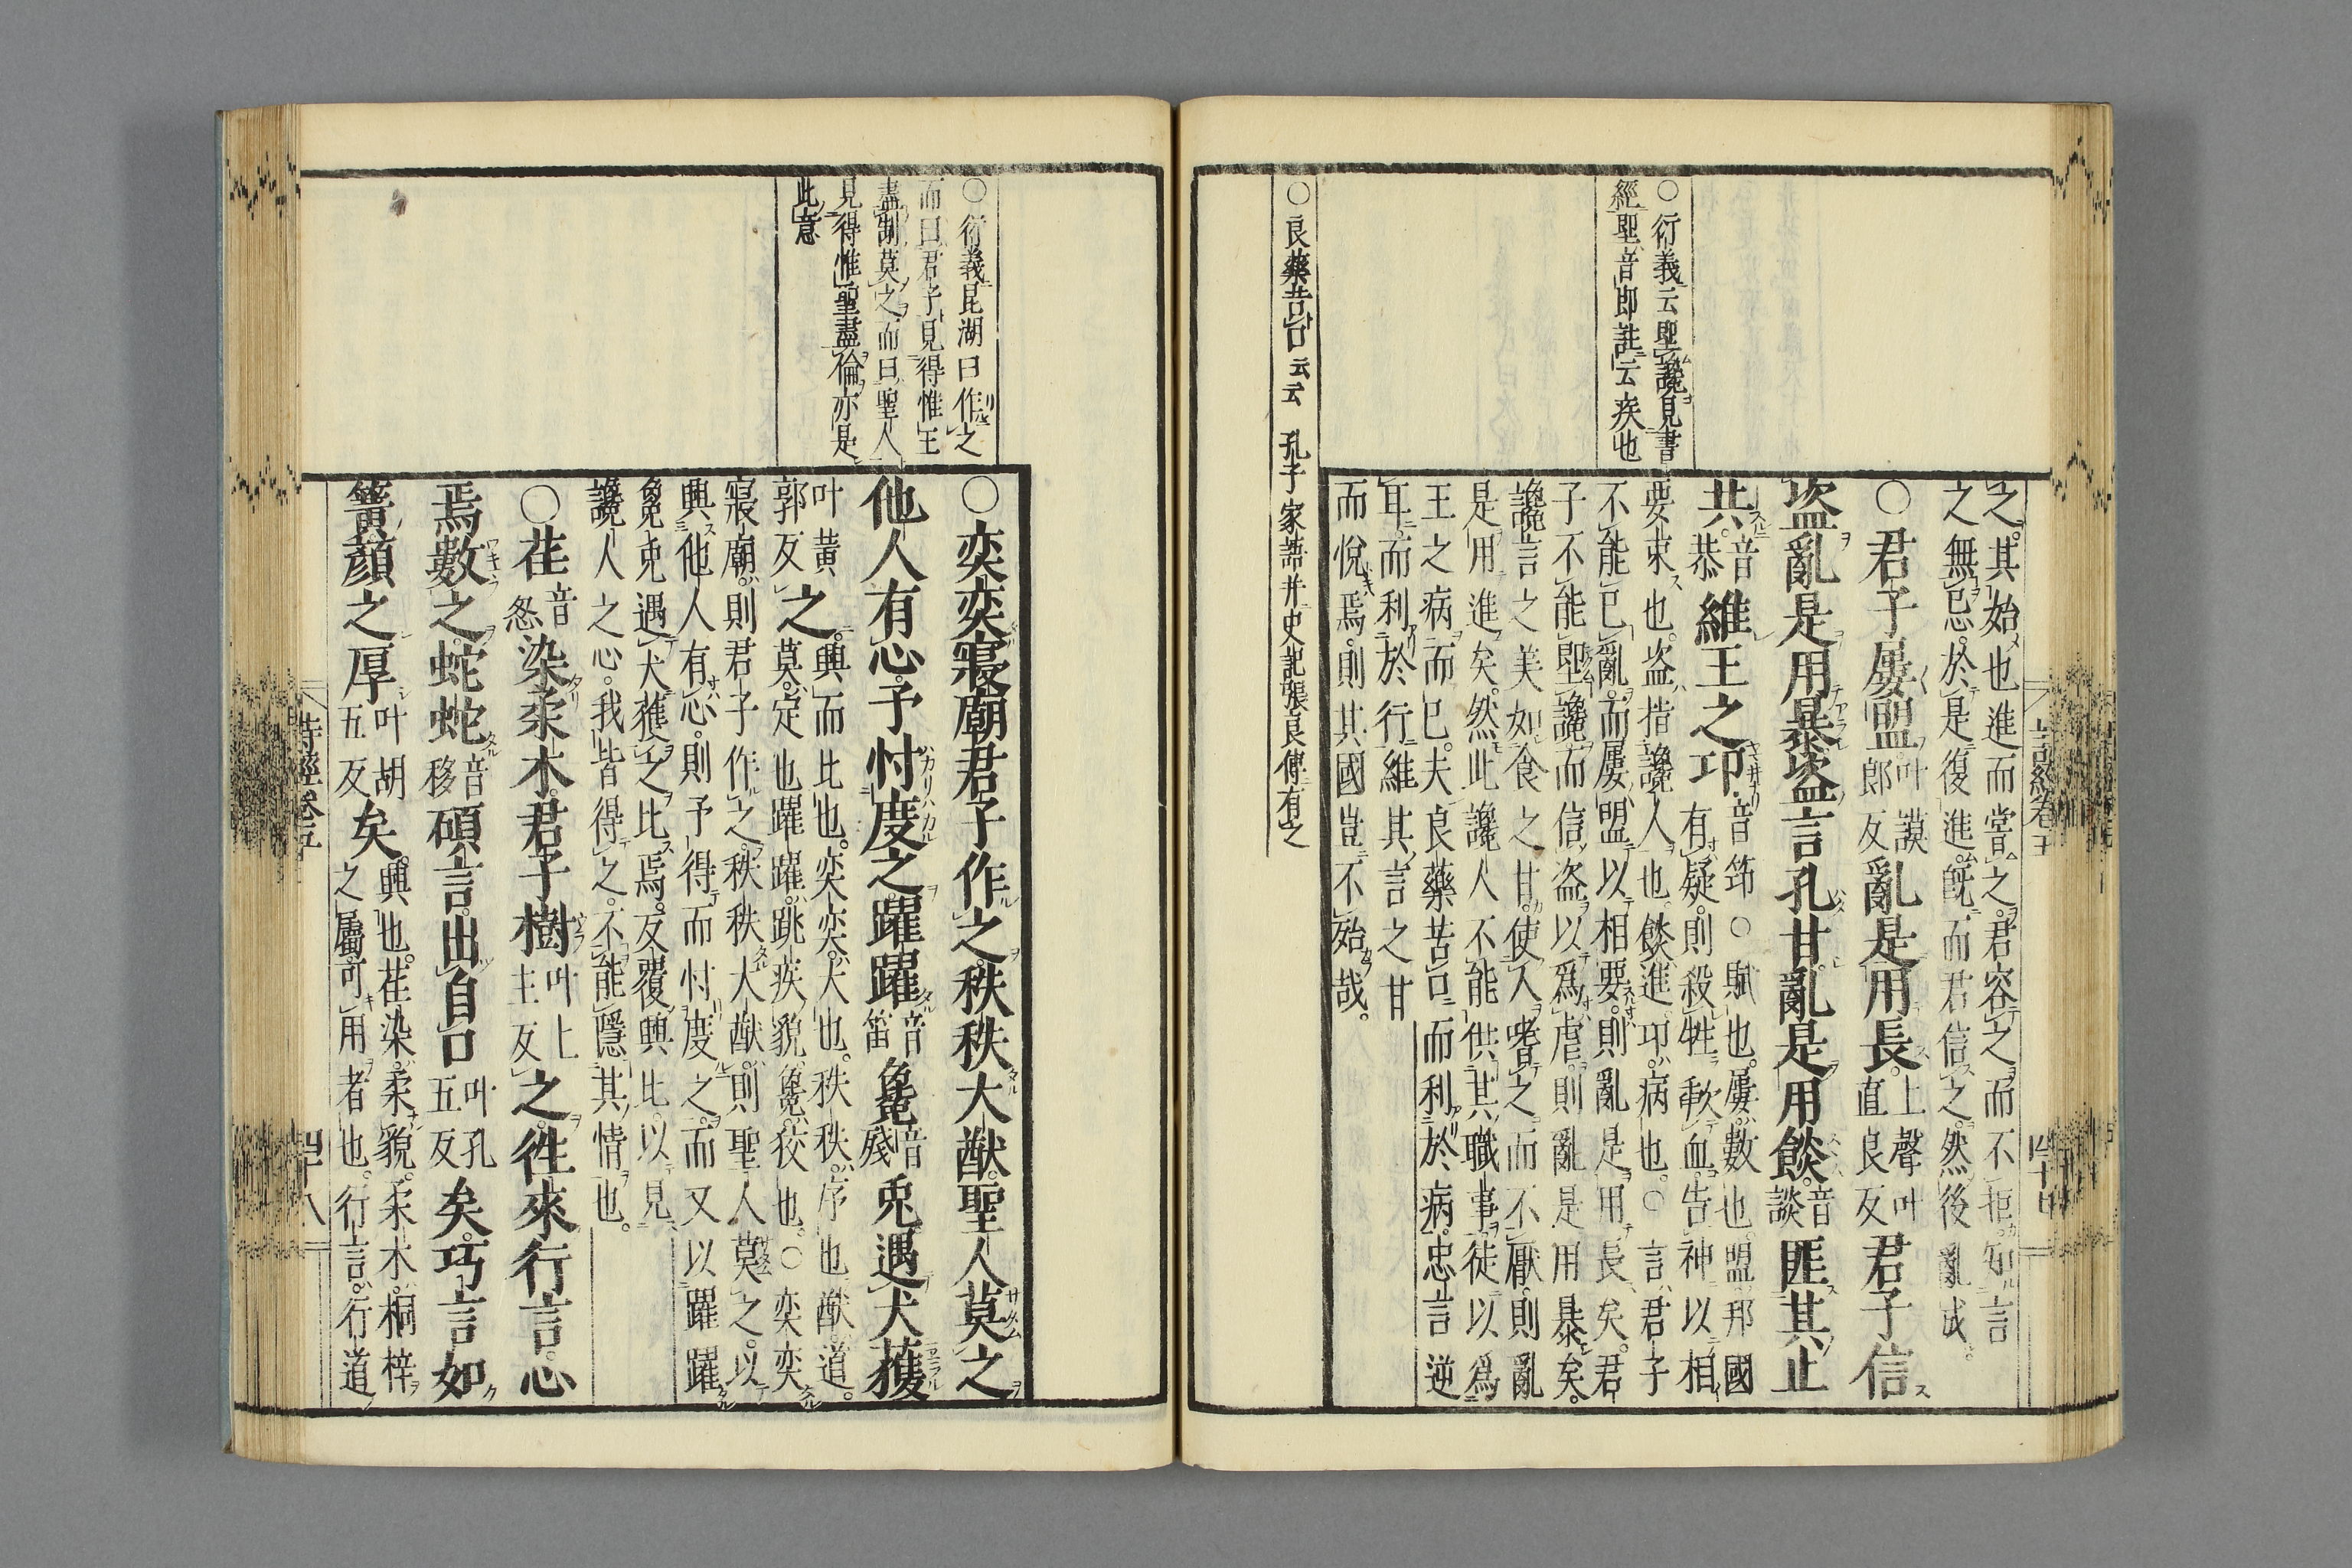 之。其始也進而嘗之。君容之而不拒。知言
之無忌。於是復進。旣而君信之。然後亂成。
○君子屢盟叶謨郎反亂是用長。上聲叶直良反君子信
盜亂是用暴盜言孔甘亂是用餤。音談匪其止
共。音恭維王之卭。音筇○賦也。屢。數也。盟。邦國
有疑。則殺牲歃血。告神以相
要束也。盜。指讒人也。餤。進。卭。病也。○言。君子
不能已亂。而屢盟以相要。則亂是用長矣。君
子不能堲讒。而信盜以爲虐。則亂是用暴矣。
讒言之美。如食之甘。使人嗜之而不厭。則亂
是用進矣。然此讒人不能供其職事。徒以爲
王之病而已。夫良藥苦口。而利於病。忠言逆
耳。而利於行。維其言之甘
而悅焉。則其國豈不殆哉。
○衍義云堲讒見書
經堲音即註云疾也
○良藥苦口云云 孔子家語并史記張良傳有之
詩經卷五
四十七
○衍義昆湖曰作之
而曰君子見得惟王
盡制莫之而曰聖人
見得惟聖盡倫亦是
此意
○奕奕寢廟君子作之。秩秩大猷。聖人莫之
他人有心。予忖度之。躍躍音笛毚音殘兎遇犬獲
叶黃郭反之。興而比也。奕奕。大也。秩秩。序也。猷。道。
莫。定也。躍躍。跳疾貌。毚。狡也。○奕奕
寢廟。則君子作之。秩秩大猷。則聖人莫之。以
興他人有心。則予得而忖度之。而又以躍躍
毚兎遇犬獲之比焉。反覆興比。以見
讒人之心。我皆得之。不能隱其情也。
○荏音忍染柔木。君子樹叶上主反之。往來行言。心
焉數之。蛇蛇音移碩言。出自口叶孔五反矣。巧言如
簧顏之厚叶胡五反矣。興也。荏染。柔貌。柔木。桐梓
之屬。可用者也。行言。行道
詩經卷五
四十八